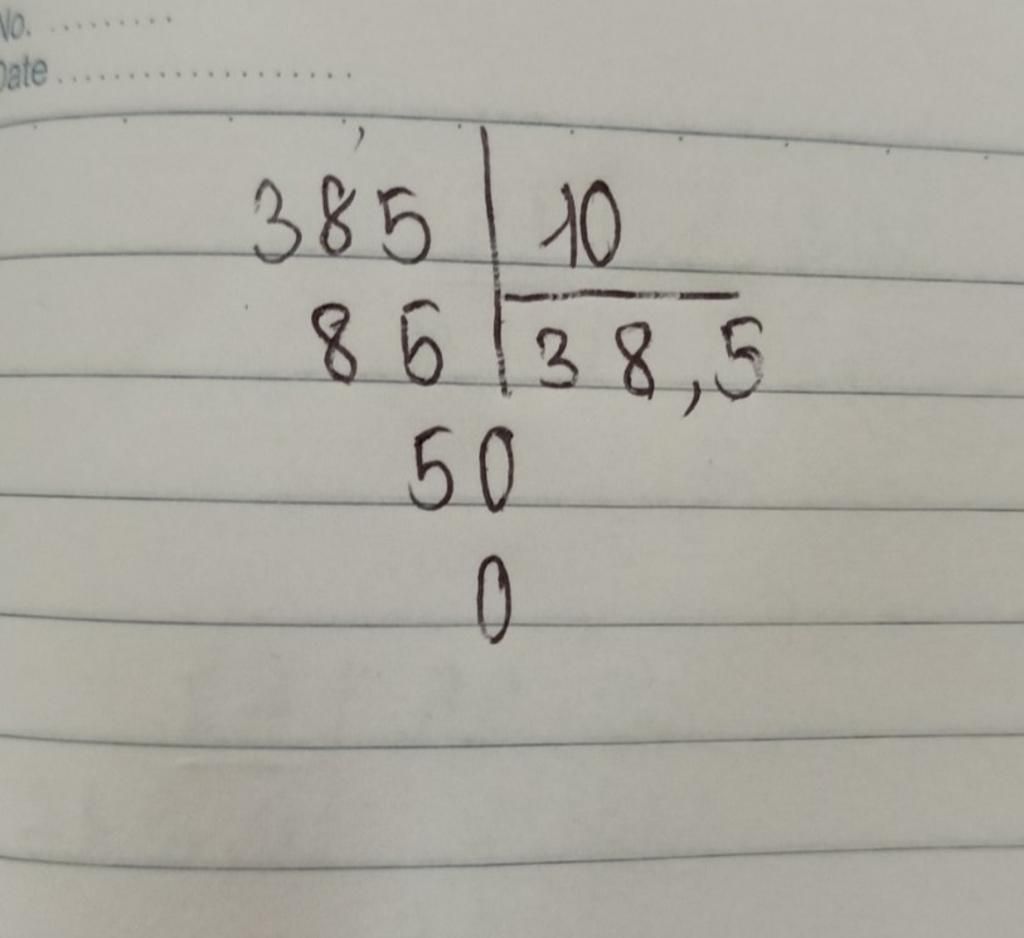 No. .........
Date ...................
,
385 | 10
85 | 38,5
50
0